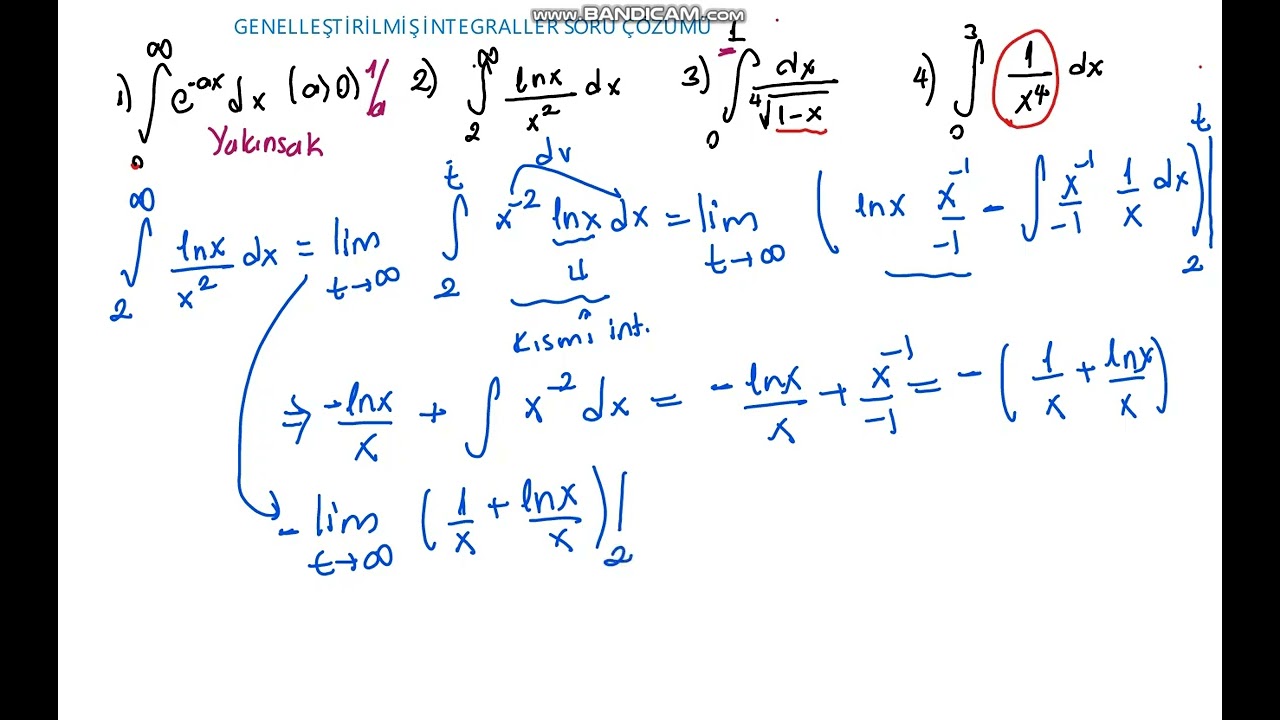 www.BANDICAM.com
GENELLEŞTİRİLMİŞ İNTEGRALLER SORU ÇÖZÜMÜ
1) ∫₀^∞ e^(-ax) dx (a>0) 1/a 2) ∫₂^∞ lnx/x² dx 3) ∫₀^1 dx/⁴√(1-x) 4) ∫₀^3 1/x⁴ dx
Yakınsak
∫₂^∞ lnx/x² dx = lim t→∞ ∫₂^t x^(-2) lnx dx = lim t→∞ (lnx x^(-1)/-1 - ∫ x^(-1)/-1 1/x dx)|₂^t
dv
u
Kısmî int.
⇒ -lnx/x + ∫ x^(-2) dx = -lnx/x + x^(-1)/-1 = -(1/x + lnx/x)
- lim t→∞ (1/x + lnx/x)|₂